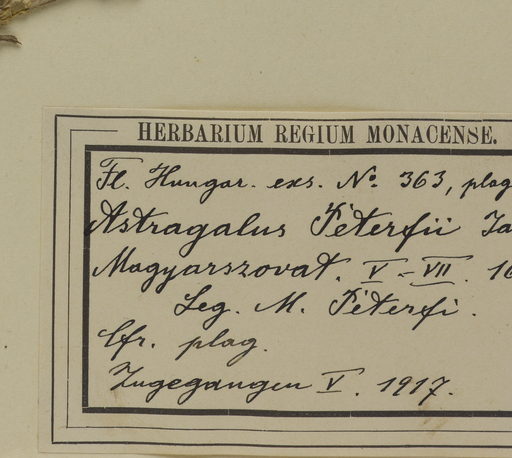 HERBARIUM REGIUM MONACENSE.
Fl. Hungar. exs. No. 363, plag
Astragalus Péterfii Ja
Magyarszovat. V - VII. 16
Leg. M. Péterfi.
Cfr. plag.
Zugegangen V. 1917.